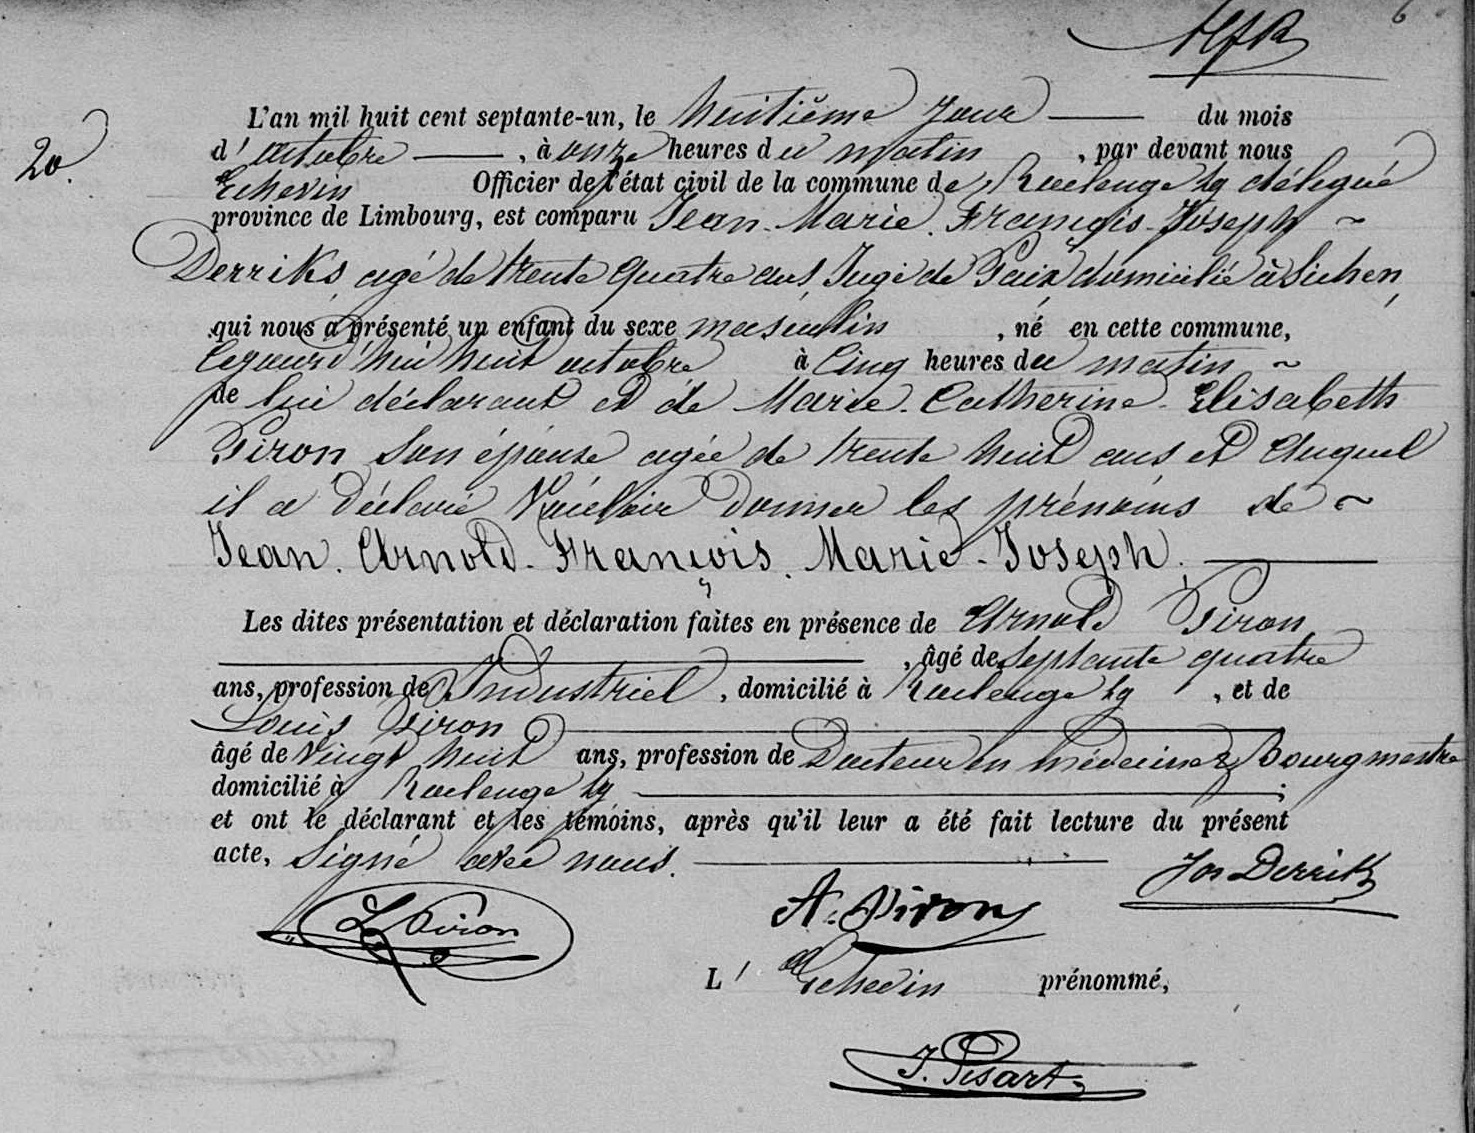 6
20.
L'an mil huit cent septante-un, le huitième jour du mois
d'octobre, à onze heures du matin, par devant nous
Echevin Officier de l'état civil de la commune de Roclenge s/g délégué
province de Limbourg, est comparu Jean-Marie François-Joseph
Derriks agé de trente quatre ans, Juge de Paix domicilié à Sichen,
qui nous a présenté un enfant du sexe masculin, né en cette commune,
cejourd'hui huit octobre à Cinq heures du matin
de lui déclarant et de Marie-Catherine-Elisabeth
Piron son épouse agée de trente huit ans et Auquel
il a Déclaré Vouloir Donner les prénoms de
Jean. Arnold-François. Marie-Joseph.
Les dites présentation et déclaration faites en présence de Arnold Piron
, âgé de septante quatre
ans, profession de Industriel, domicilié à Roclenge s/g, et de
Louis Piron
âgé de Vingt huit ans, profession de Docteur en médecine & Bourgmestre
domicilié à Roclenge s/g ;
et ont le déclarant et les témoins, après qu'il leur a été fait lecture du présent
acte, Signé avec nous.
Jos Derriks
L Piron
A. Piron
L'Echevin prénommé,
J. Pisart